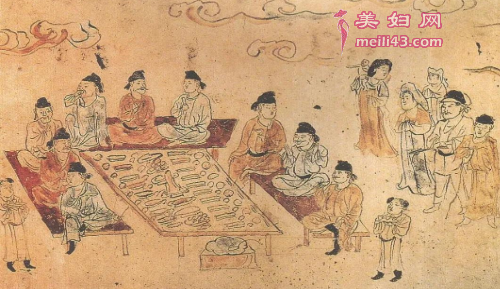 美妇网
meili43.com